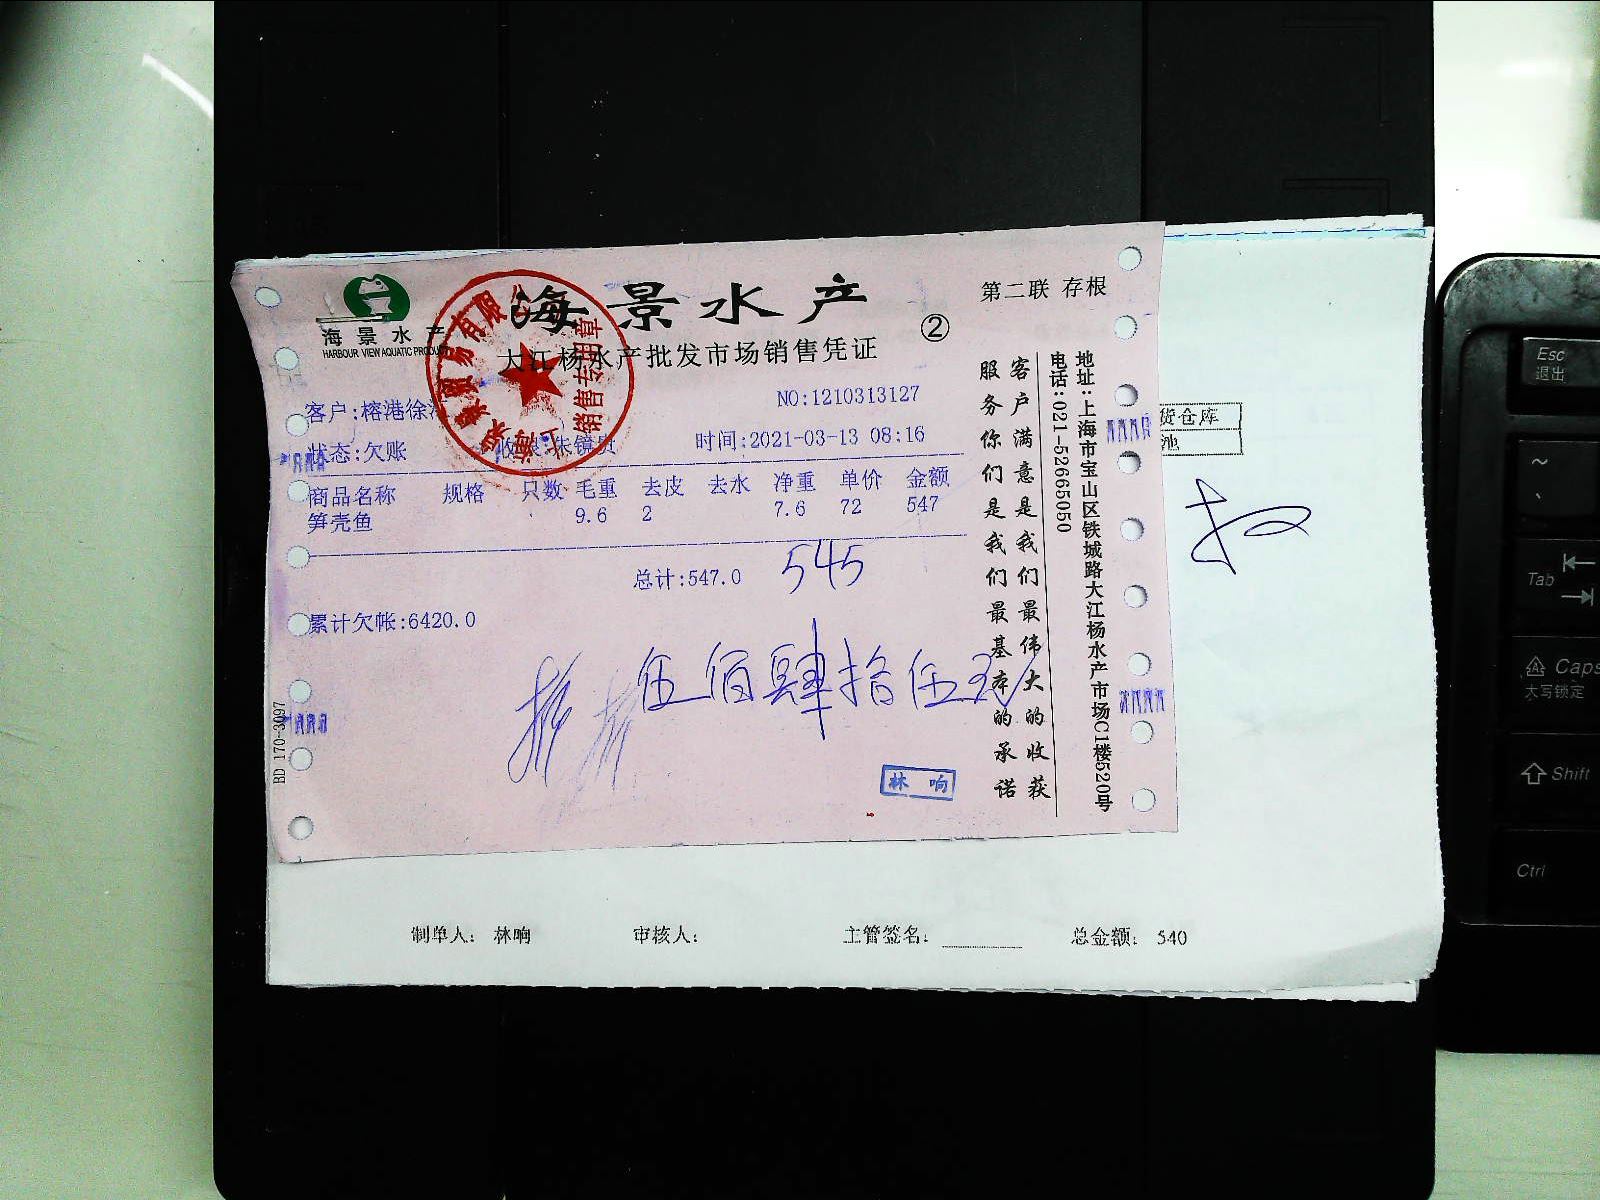 海景水产
HARBOUR VIEW AQUATIC PRODUCT
海景水产
第二联 存根
②
大江杨水产批发市场销售凭证
NO:1210313127
客户:榕港徐
状态:欠账
朱镜贵
时间:2021-03-13 08:16
商品名称 规格 只数 毛重 去皮 去水 净重 单价 金额
笋壳鱼 9.6 2 7.6 72 547
总计:547.0
545
累计欠帐:6420.0
伍佰肆拾伍
林 响
贸易有限
销售专用章
客户满意是我们最伟大的收获
服务你们是我们最基本的承诺
地址:上海市宝山区铁城路大江杨水产市场C1楼520号
电话:021-52665050
BD 170-3097
货仓库
池
制单人: 林响
审核人:
主管签名:
总金额: 540
Esc
退出
~
Tab
Caps
大写锁定
Shift
Ctrl